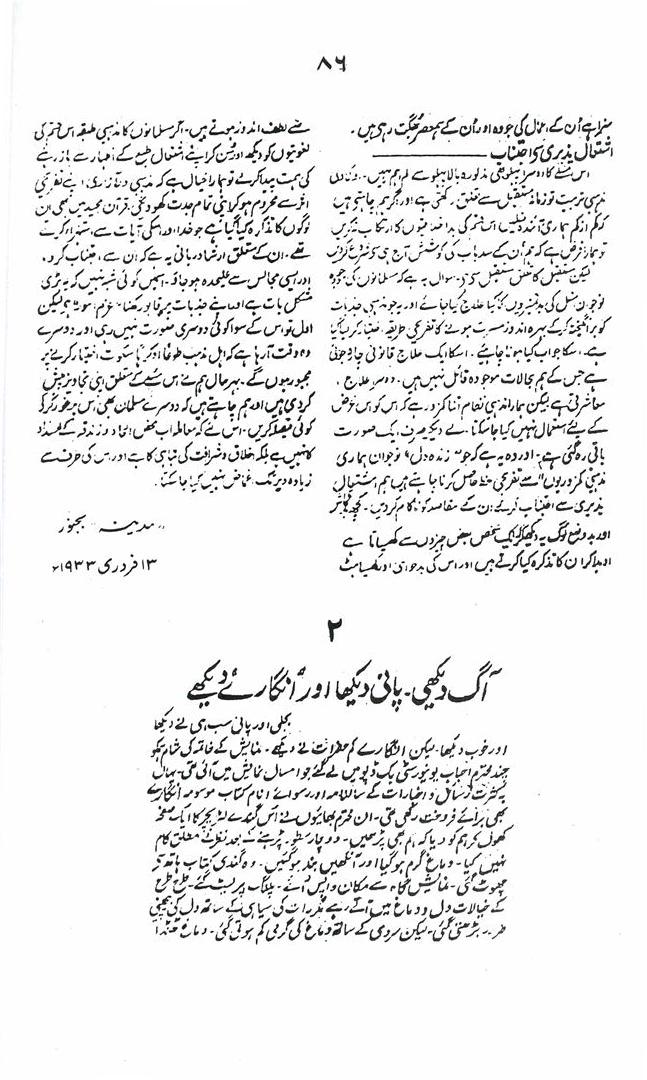 ۸۶
سزا ہے اُن کے اعمال کی جو وہ اور اُن کے ہمعصر بھگت رہی ہیں۔
اشتعال پذیری سے اجتناب
اس مسئلے کا دوسرا پہلو بھی مذکورہ بالا پہلو سے کم اہم نہیں۔
مذہبی تربیت تو زمانۂ مستقبل سے تعلق رکھتی ہے اور اگر ہم چاہتی ہیں
کہ کم از کم ہماری آئندہ نسلیں اس قسم کی بد اخلاقیوں کا ارتکاب نکریں
تو ہمارا فرض ہے کہ ہم اُن کے سدباب کی کوشش آج ہی سے شروع کر دیں
لیکن مستقبل کا تعلق مستقبل سے ہے۔ سوال یہ ہے کہ مسلمانوں کی موجودہ
نوجوان نسل کی بد تمیزیوں کا کیا علاج کیا جائے اور یہ جو مذہبی جذبات
کو برانگیختہ کر کے بہرہ اندوز مسرت ہونے کا تفریحی طریقہ اختیار کر لیا گیا
ہے۔ اسکا جواب کیا ہونا چاہیئے۔ اسکا ایک علاج قانونی چارہ جوئی
ہے جس کے ہم بحالات موجودہ قائل نہیں ہیں۔ دوسرا علاج
معاشرتی ہے لیکن ہمارا مذہبی نظام اتنا کمزور ہے کہ اس کو اس غرض
کے لئے استعمال نہیں کیا جا سکتا۔ لے دیکر صرف ایک صورت
باقی رہ گئی ہے۔ اور وہ یہ ہے کہ جو "زندہ دل" نوجوان ہماری
مذہبی کمزوریوں سے تفریحی حظ حاصل کرنا چاہتے ہیں ہم اشتعال
پذیری سے اجتناب کر کے اُن کے مقاصد کو ناکام کر دیں۔
اور بد وضع لوگ یہ دیکھ کر کہ ایک شخص بعض چیزوں سے کھسیاتا ہے
اور بدا کر ان کا تذکرہ کیا کرتے ہیں اور اس کی بدحواسی اور کھسیاہٹ
سے لطف اندوز ہوتے ہیں۔ اگر مسلمانوں کا مذہبی طبقہ اس قسم کی
لغویتوں کو دیکھ اور سُن کر اپنے اشتعال طبع کے اظہار سے باز رہنے
کی ہمت پیدا کر لے تو ہمارا خیال ہے کہ مذہبی دلآزاری، اپنے تفریحی
اثر سے محروم ہو کر اپنی تمام جدت کھو دیگی۔ قرآن مجید میں بھی اُن
لوگوں کا تذکرہ کیا گیا ہے جو خدا اور اسکی آیات سے استہزا کرتے
تھے۔ ان کے متعلق ارشاد ربانی یہ ہے کہ اُن سے اجتناب کرو۔
اور ایسی مجالس سے علیحدہ ہو جاؤ۔ اسمیں کوئی شبہ نہیں کہ یہ بڑی
مشکل بات ہے اور اپنے جذبات پر قابو رکھنا "عزم امور" ہے لیکن
اول تو اس کے سوا کوئی دوسری صورت نہیں رہی اور دوسرے
وہ وقت آ رہا ہے کہ اہل مذہب طوعاً اور کرہاً سکوت اختیار کرنے پر
مجبور ہوں گے۔ بہر حال ہم نے اس مسئلے کے متعلق اپنی تجاویز پیش
کر دی ہیں اور ہم چاہتے ہیں کہ دوسرے مسلمان بھی اس پر غور کر کے
کوئی فیصلہ کریں۔ اس لئے کہ معاملہ اب محض الحاد و زندقہ کے انسداد
کا نہیں ہے بلکہ اخلاق و شرافت کی تباہی کا ہے اور اس کی طرف سے
زیادہ دیر تک اغماض نہیں کیا جا سکتا۔
مدینہ بجنور
۱۳ فروری ۱۹۳۳ء
۲
آگ دیکھی۔ پانی دیکھا اور انگارے دیکھے
بجلی اور پانی سب ہی نے دیکھا
اور خوب دیکھا۔ لیکن انگارے کم حضرات نے دیکھے۔ نمائش کے خاتمہ کی شام کو
چند محترم احباب یونیورسٹی بک ڈپو میں لے گئے جو امسال نمائش میں آئی تھی۔ یہاں
بکثرت رسائل و اخبارات کے سالنامہ اور رسوائے انام کتاب موسومہ انگارے
بھی برائے فروخت رکھی تھی۔ ان محترم بھائیوں نے اس گندے لٹریچر کا ایک صفحہ
کھول کر ہم کو دیا کہ ہم بھی پڑھیں۔ دو چار سطور پڑھنے کے بعد نظر نے مطلق کام
نہیں کیا۔ دماغ گرم ہو گیا اور آنکھیں بند ہو گئیں۔ وہ گندی کتاب ہاتھ سے
چھوٹ گئی۔ نمائش گاہ سے مکان واپس آئے۔ پلنگ پر لیٹ گئے۔ طرح طرح
کے خیالات دل و دماغ میں آتے رہے اور رات کی سیاہی کے ساتھ دل کی بیچینی
ضرور بڑھتی گئی۔ لیکن سردی کے ساتھ دماغ کی گرمی کم ہوتی گئی۔ دماغ ٹھنڈا